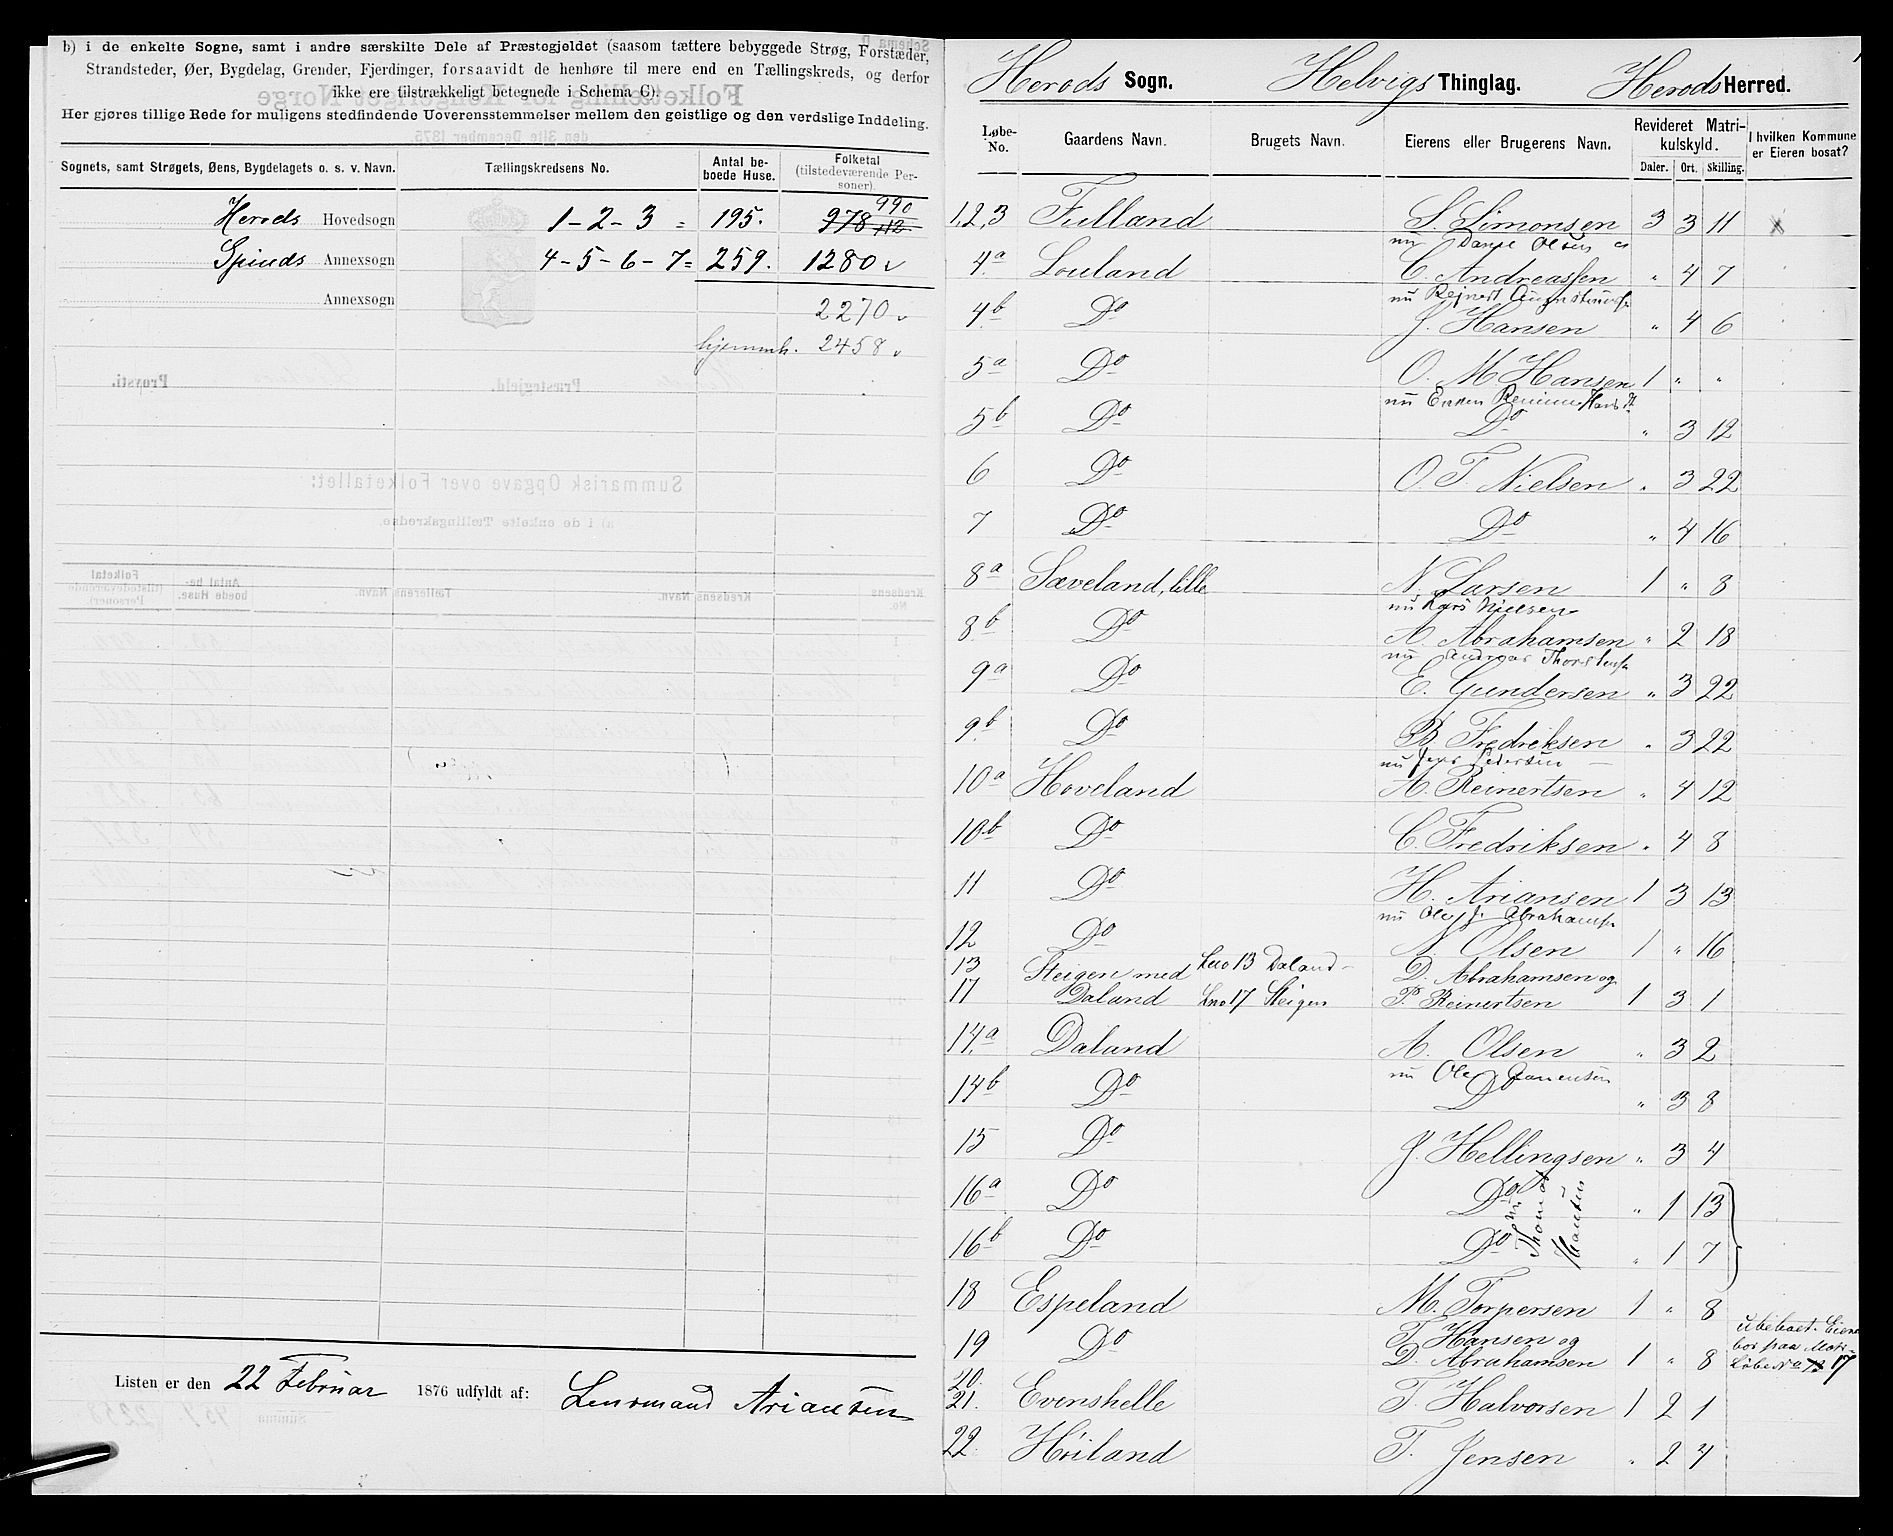 b) i de enkelte Sogne, samt i andre særskilte Dele af Præstegjeldet (saasom tættere bebyggede Strøg, Forstæder,
Strandsteder, Øer, Bygdelag, Grender, Fjerdinger, forsaavidt de henhøre til mere end en Tællingskreds, og derfor
ikke ere tilstrækkeligt betegnede i Schema G).
Her gjøres tillige Rede for muligens stedfindende Uoverensstemmelser mellem den geistlige og den verdslige Inddeling.
Sognets, samt Strøgets, Øens, Bygdelagets o. s. v. Navn. Tællingskredsens No. Antal beboede Huse. Folketal (tilstedeværende Personer).
990
Herods Hovedsogn 1-2-3 = 195. 978
Spinds Annexsogn 4-5-6-7= 259. 1280
Annexsogn 2270
hjemmh. 2458
Listen er den 22 Februar 1876 udfyldt af: Lensmand Ariansen
Herods Sogn. Helvigs Thinglag. Herods Herred.
Løbe-No. Gaardens Navn. Brugets Navn. Eierens eller Brugerens Navn. Revideret Matrikulskyld. Daler. Ort. Skilling. I hvilken Kommune er Eieren bosat?
1,2,3 Fulland S. Simonsen 3 3 11
nu Daniel Olsen
4a Louland C. Andreassen " 4 7
nu Reinert
4b Do J. Hansen " 4 6
5a Do O. M. Hansen 1 " "
nu
5b Do Do " 3 12
6 Do O. T. Nielsen " 3 22
7 Do Do " 4 16
8a Sæveland, lille N. Larsen 1 " 8
nu Lars Nielsen
8b Do A. Abrahamsen " 2 18
nu Andreas
9a Do E. Gundersen " 3 22
9b Do B. Fredriksen " 3 22
nu Jens Pedersen
10a Hoveland A. Reinertsen " 4 12
10b Do C. Fredriksen " 4 8
11 Do H. Ariansen 1 3 13
nu Ole J. Abrahams
12 Do N. Olsen 1 " 16
13 Steigen med Lno 13 Daland D. Abrahamsen og
17 Daland Lno 17 Steigen P. Reinertsen 1 3 1
14a Daland A. Olsen " 3 2
nu Ole
14b Do Do " 3 8
15 Do J. Hellingsen " 3 4
16a Do Do " 1 13
nu Thomas Hansen
16b Do Do " 1 7
18 Espeland M. Torpersen 1 " 8
19 Do T. Hansen og
D. Abrahamsen 1 " 8
ubebaet. Eierne
bor paa Matr.
Løbe No 17
20.
21. Evenshelle T. Halvorsen 1 2 1
22. Høiland T. Jensen " 2 4